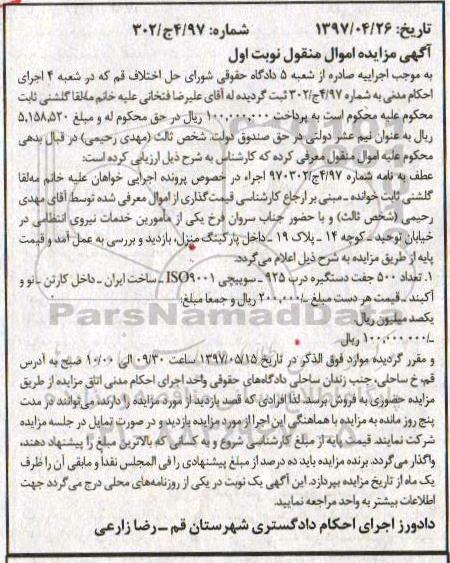 تاریخ: ۱۳۹۷/۰۴/۲۶ شماره: ۳۰۲/ج۴/۹۷
آگهی مزایده اموال منقول نوبت اول
به موجب اجراییه صادره از شعبه ۵ دادگاه حقوقی شورای حل اختلاف قم که در شعبه ۴ اجرای
احکام مدنی به شماره ۳۰۲/ج۴/۹۷ ثبت گردیده له آقای علیرضا فتخانی علیه خانم مه‌لقا گلشنی ثابت
محکوم علیه محکوم است به پرداخت ۱۰۰,۰۰۰,۰۰۰ ریال در حق محکوم له و مبلغ ۵,۱۵۸,۵۲۰
ریال به عنوان نیم عشر دولتی در حق صندوق دولت. شخص ثالث (مهدی رحیمی) در قبال بدهی
محکوم علیه اموال منقول معرفی کرده که کارشناس به شرح ذیل ارزیابی کرده است:
عطف به نامه شماره ۹۷۰۳۰۲/ج۴/۹۷ اجراء در خصوص پرونده اجرایی خواهان علیه خانم مه‌لقا
گلشنی ثابت خوانده ـ مبنی بر ارجاع کارشناسی قیمت‌گذاری از اموال معرفی شده توسط آقای مهدی
رحیمی (شخص ثالث) و با حضور جناب سروان فرخ یکی از مأمورین خدمات نیروی انتظامی در
خیابان توحید ـ کوچه ۱۴ ـ پلاک ۱۹ ـ داخل پارکینگ منزل، بازدید و بررسی به عمل آمد و قیمت
پایه از طریق مزایده به شرح ذیل اعلام می‌گردد.
۱. تعداد ۵۰۰ جفت دستگیره درب ۹۲۵ ـ سوپیچی ISO۹۰۰۱ ـ ساخت ایران ـ داخل کارتن ـ نو و
آکبند ـ قیمت هر دست مبلغ ـ/۲۰۰,۰۰۰ ریال و جمعا مبلغ:
یکصد میلیون ریال.
ـ/۱۰۰,۰۰۰,۰۰۰ ریال
و مقرر گردیده موارد فوق الذکر در تاریخ ۱۳۹۷/۰۵/۱۵ ساعت ۰۹/۳۰ الی ۱۰/۰۰ صبح به آدرس
قم، خ ساحلی، جنب زندان ساحلی دادگاه‌های حقوقی واحد اجرای احکام مدنی اتاق مزایده از طریق
مزایده حضوری به فروش برسد. لذا افرادی که قصد بازدید از مورد مزایده را دارند، می‌توانند در مدت
پنج روز مانده به مزایده با هماهنگی این اجرا از مورد مزایده بازدید و در صورت تمایل در جلسه مزایده
شرکت نمایند. قیمت پایه از مبلغ کارشناسی شروع و به کسانی که بالاترین مبلغ را پیشنهاد دهند،
واگذار می‌گردد. برنده مزایده باید ده درصد از مبلغ پیشنهادی را فی المجلس نقدا و مابقی آن را ظرف
یک ماه از تاریخ مزایده بپردازد. این آگهی یک نوبت در یکی از روزنامه‌های محلی درج می‌گردد جهت
اطلاعات بیشتر به واحد مراجعه نمایید.
دادورز اجرای احکام دادگستری شهرستان قم ـ رضا زارعی
ParsNamadData